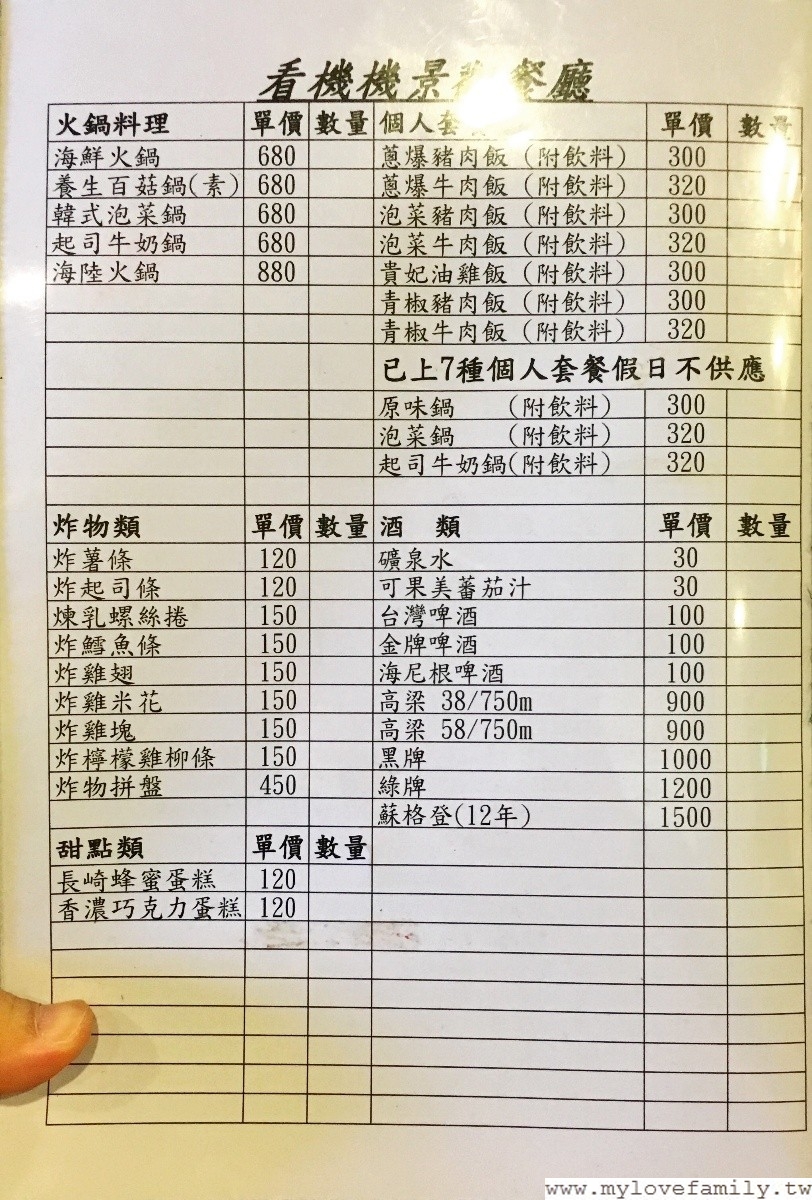 看機機景 餐廳
火鍋料理 單價 數量 個人套 單價 數量
海鮮火鍋 680 蔥爆豬肉飯(附飲料) 300
養生百菇鍋(素) 680 蔥爆牛肉飯(附飲料) 320
韓式泡菜鍋 680 泡菜豬肉飯(附飲料) 300
起司牛奶鍋 680 泡菜牛肉飯(附飲料) 320
海陸火鍋 880 貴妃油雞飯(附飲料) 300
青椒豬肉飯(附飲料) 300
青椒牛肉飯(附飲料) 320
已上7種個人套餐假日不供應
原味鍋 (附飲料) 300
泡菜鍋 (附飲料) 320
起司牛奶鍋(附飲料) 320
炸物類 單價 數量 酒 類 單價 數量
炸薯條 120 礦泉水 30
炸起司條 120 可果美蕃茄汁 30
煉乳螺絲捲 150 台灣啤酒 100
炸鱈魚條 150 金牌啤酒 100
炸雞翅 150 海尼根啤酒 100
炸雞米花 150 高梁 38/750m 900
炸雞塊 150 高梁 58/750m 900
炸檸檬雞柳條 150 黑牌 1000
炸物拼盤 450 綠牌 1200
蘇格登(12年) 1500
甜點類 單價 數量
長崎蜂蜜蛋糕 120
香濃巧克力蛋糕 120
www.mylovefamily.tw